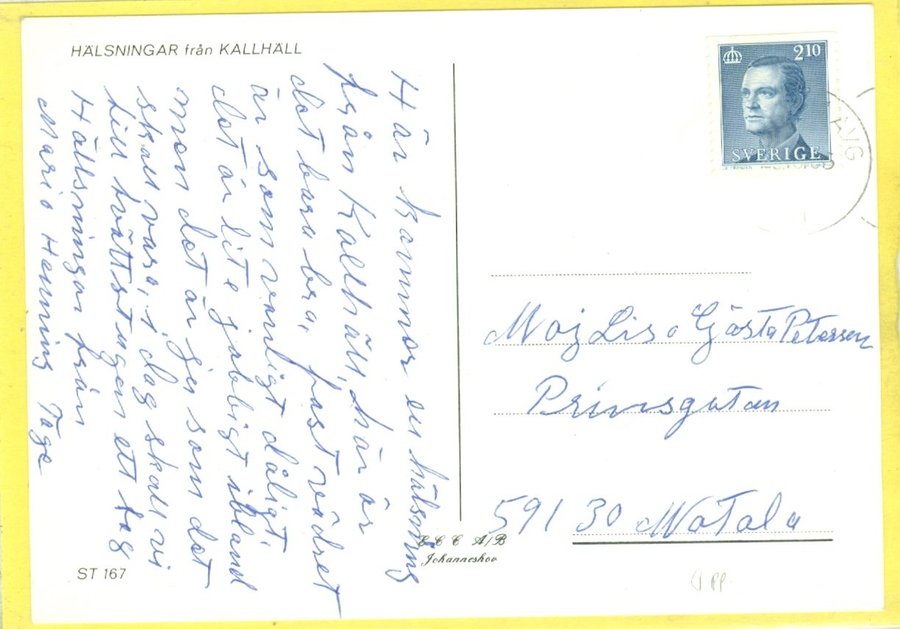 HÄLSNINGAR från KALLHÄLL
Här kommer en hälsning
från Kallhäll, här är
det bara bra, fast vädret
är som vanligt dåligt,
det är lite jobbigt ibland
men det är ju som det
skall vara, i dag skall vi
till tvättstugan ett tag
Hälsningar från
Mari o Henning Tage
ST 167
2.10
SVERIGE
Maj Lis o Gösta Peterson
Prinsgatan
591 30 Motala
A/B
Johanneshov